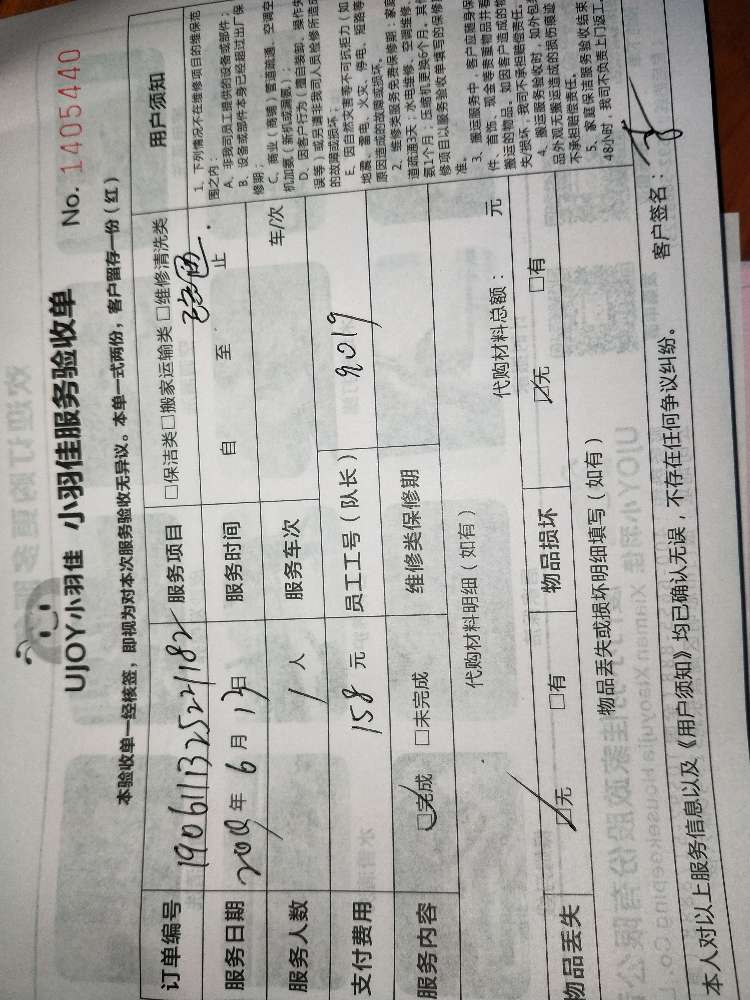 UJOY小羽佳 小羽佳服务验收单
No. 1405440
本验收单一经核签，即视为对本次服务验收无异议。本单一式两份，客户留存一份（红）
订单编号 190611132522182 服务项目 □保洁类□搬家运输类 □维修清洗类
服务日期 2019年 6 月 13日 服务时间 自 至 止
服务人数 1 人 服务车次 车/次
支付费用 158 元 员工工号（队长） 9019
服务内容 □完成 □未完成 维修类保修期
代购材料明细（如有） 代购材料总额： 元
物品丢失 □无 □有 物品损坏 □无 □有
物品丢失或损坏明细填写（如有）
用户须知
1、下列情况不在维修项目的维保范
围之内：
A、非我司员工提供的设备或部件；
B、设备或部件本身已经超过出厂保
修期；
C、商业（商铺）管道疏通、空调空
机加氨（新机或漏氨）；
D、因客户行为（擅自装卸、操作失
误等）或另请非我司人员检修所造成
的故障或损坏；
E、因自然灾害等不可抗拒力（如
地震、雷电、火灾、停电、短路等
原因造成的故障或损坏。
2、维修类服务免费保修期：家
道疏通3天；水电维修、空调维修、
氨1个月；压缩机更换6个月。其
修项目以服务验收单填写的保修
准。
3、搬运服务中，客户应随身保
件、首饰、现金等贵重物品并看
搬运的物品。如因客户造成的物
失/损坏，我司不承担赔偿责任。
4、搬运服务验收时，如外包
品外观无搬运造成的损伤痕迹
不承担赔偿责任。
5、家庭保洁服务验收结束
48小时，我司不负责上门返工
本人对以上服务信息以及《用户须知》均已确认无误，不存在任何争议纠纷。 客户签名：